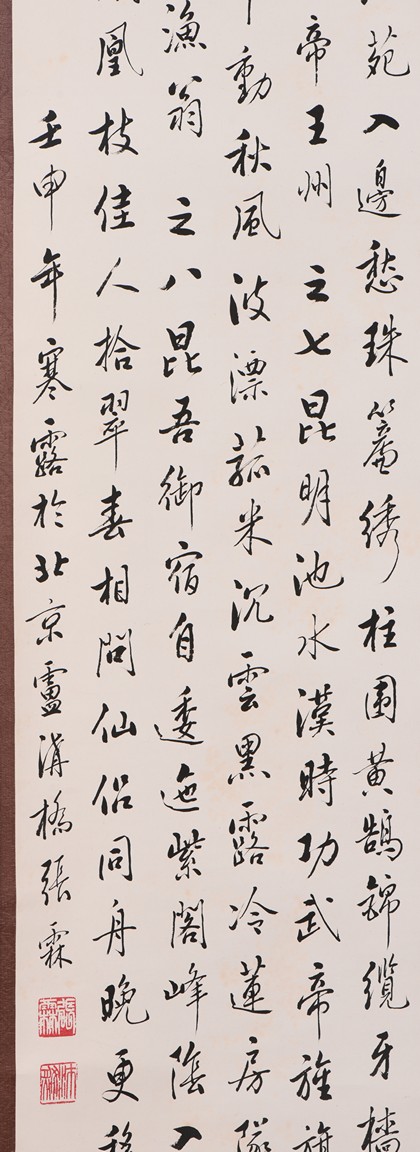 苑入邊愁珠簾綉柱圍黃鵠錦纜牙檣
帝王州 之七昆明池水漢時功武帝旌旗
動秋風波漂菰米沉雲黑露冷蓮房墜
漁翁 之八昆吾御宿自逶迤紫閣峰陰入
凰枝佳人拾翠春相問仙侶同舟晚更移
壬申年寒露於北京盧溝橋張霖